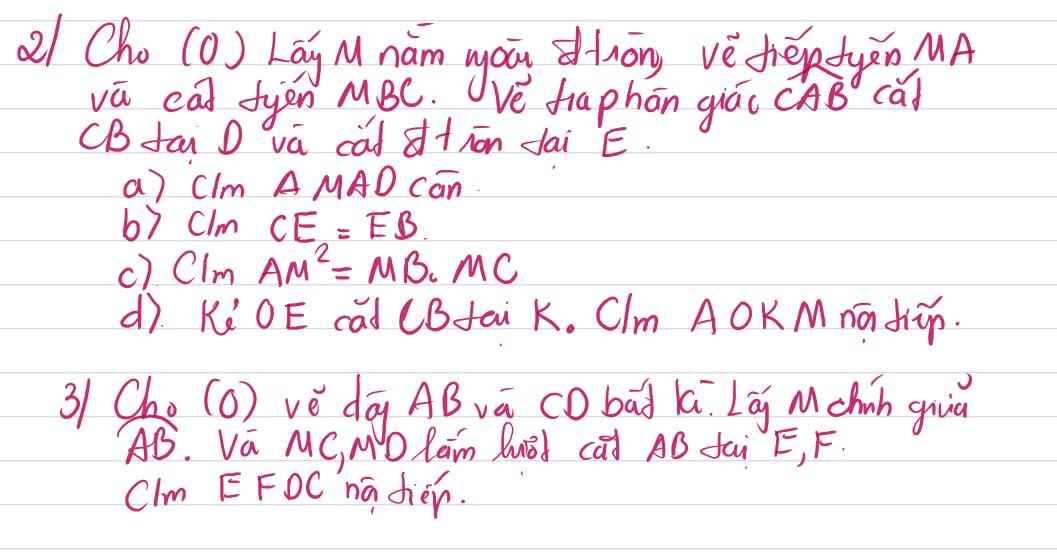 2/ Cho (O) Lấy M nằm ngoài đtròn, vẽ tiếp tuyến MA
và cát tuyến MBC. Vẽ tia phân giác CAB cắt
CB tại D và cắt đtròn tại E.
a) C/m Δ MAD cân.
b) C/m CE = EB.
c) C/m AM² = MB. MC
d). Kẻ OE cắt CB tại K. C/m AOKM nội tiếp.
3/ Cho (O) vẽ dây AB và CD bất kì. Lấy M chính giữa
AB. Và MC, MD lần lượt cắt AB tại E, F.
C/m EFDC nội tiếp.